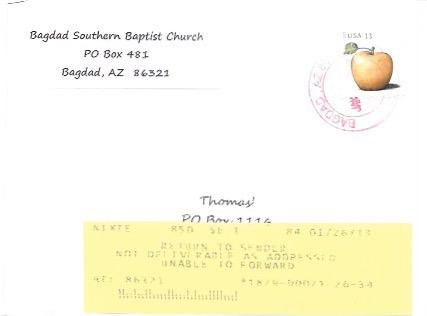 Bagdad Southern Baptist Church
PO Box 481
Bagdad, AZ 86321
USA 33
BAGDAD
Thomas'
PO Box 1114
NIXIE 850 SE 1 84 01/26/13
RETURN TO SENDER
NOT DELIVERABLE AS ADDRESSED
UNABLE TO FORWARD
BC: 86321